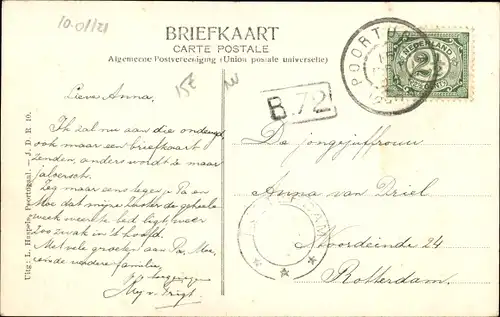 10-01/21
BRIEFKAART
CARTE POSTALE
Algemeene Postvereeniging (Union postale universelle)
15E
POORTU
NEDERLAND
2
B.72
Lieve Anna,
Ik zal nu aan die ondeugd
ook maar een briefkaart
zenden, anders wordt is maar
jaloersch.
Zeg maar eens tegen Pa en
Moe dat mijne Zuster de geheele
week weer te bed ligt, weer
zoo zwak in 't hoofd.
Met vele groeten aan Pa, Moe,
en de verdere familie,
Mej v. Trigt.
De jongejuffrouw
Anna van Driel
Noordeinde 24
Rotterdam.
Uitg: L. Hespels, Poortugaal. — J. D. R. 10.